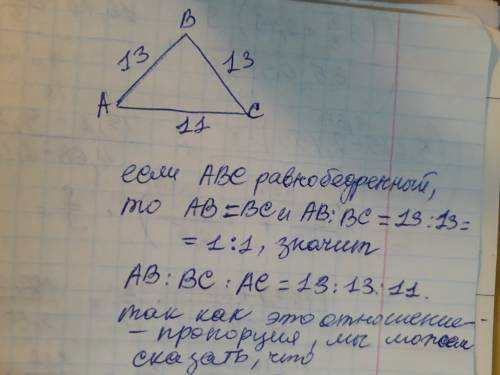 B
13 13
A C
11
если ABC равнобедренный,
то AB=BC и AB:BC=13:13=
=1:1, значит
AB:BC:AC=13:13:11.
так как это отношение-
- пропорция, мы можем
сказать, что